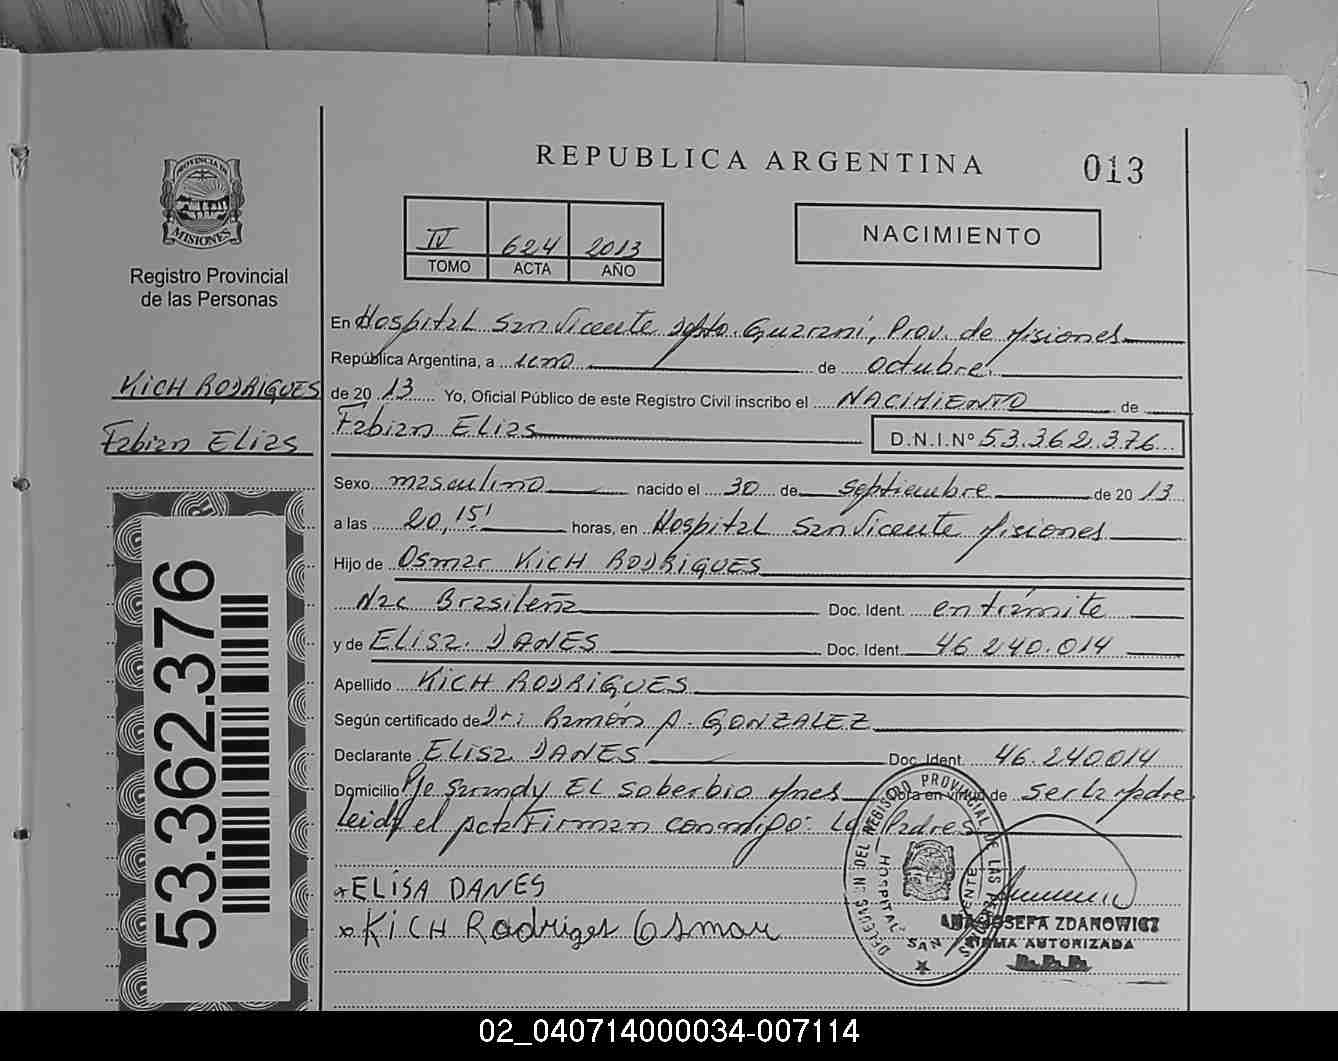 REPUBLICA ARGENTINA
013
PROVINCIA DE
MISIONES
Registro Provincial
de las Personas
IV 624 2013
TOMO ACTA AÑO
NACIMIENTO
KICH RODRIGUES
Fabian ELias
53.362.376
En Hospital San Vicente Dpto. Guarani, Prov. de Misiones
República Argentina, a uno de octubre
de 20 13 Yo, Oficial Público de este Registro Civil inscribo el NACIMIENTO de
Fabian ELias D.N.I.Nº 53.362.376
Sexo masculino nacido el 30 de septiembre de 20 13
a las 20,15' horas, en Hospital San Vicente Misiones
Hijo de Osmar KICH RODRIGUES
Nac Brasileña Doc. Ident. en trámite
y de ELisa DANES Doc. Ident. 46.240.014
Apellido KICH RODRIGUES
Según certificado de Dr: Ramón A. GONZALEZ
Declarante ELisa DANES Doc. Ident. 46.240014
Domicilio Pje Sarandy EL Soberbio Mnes Obra en virtud de ser la madre
Leida el acta Firman conmigo: Los Padres
x ELISA DANES
x KICH Rodriges Osmar
DELEGACION DEL REGISTRO PROVINCIAL DE LAS
HOSPITAL SAN VICENTE
ANA JOSEFA ZDANOWICZ
FIRMA AUTORIZADA
R.P.P.
02_040714000034-007114